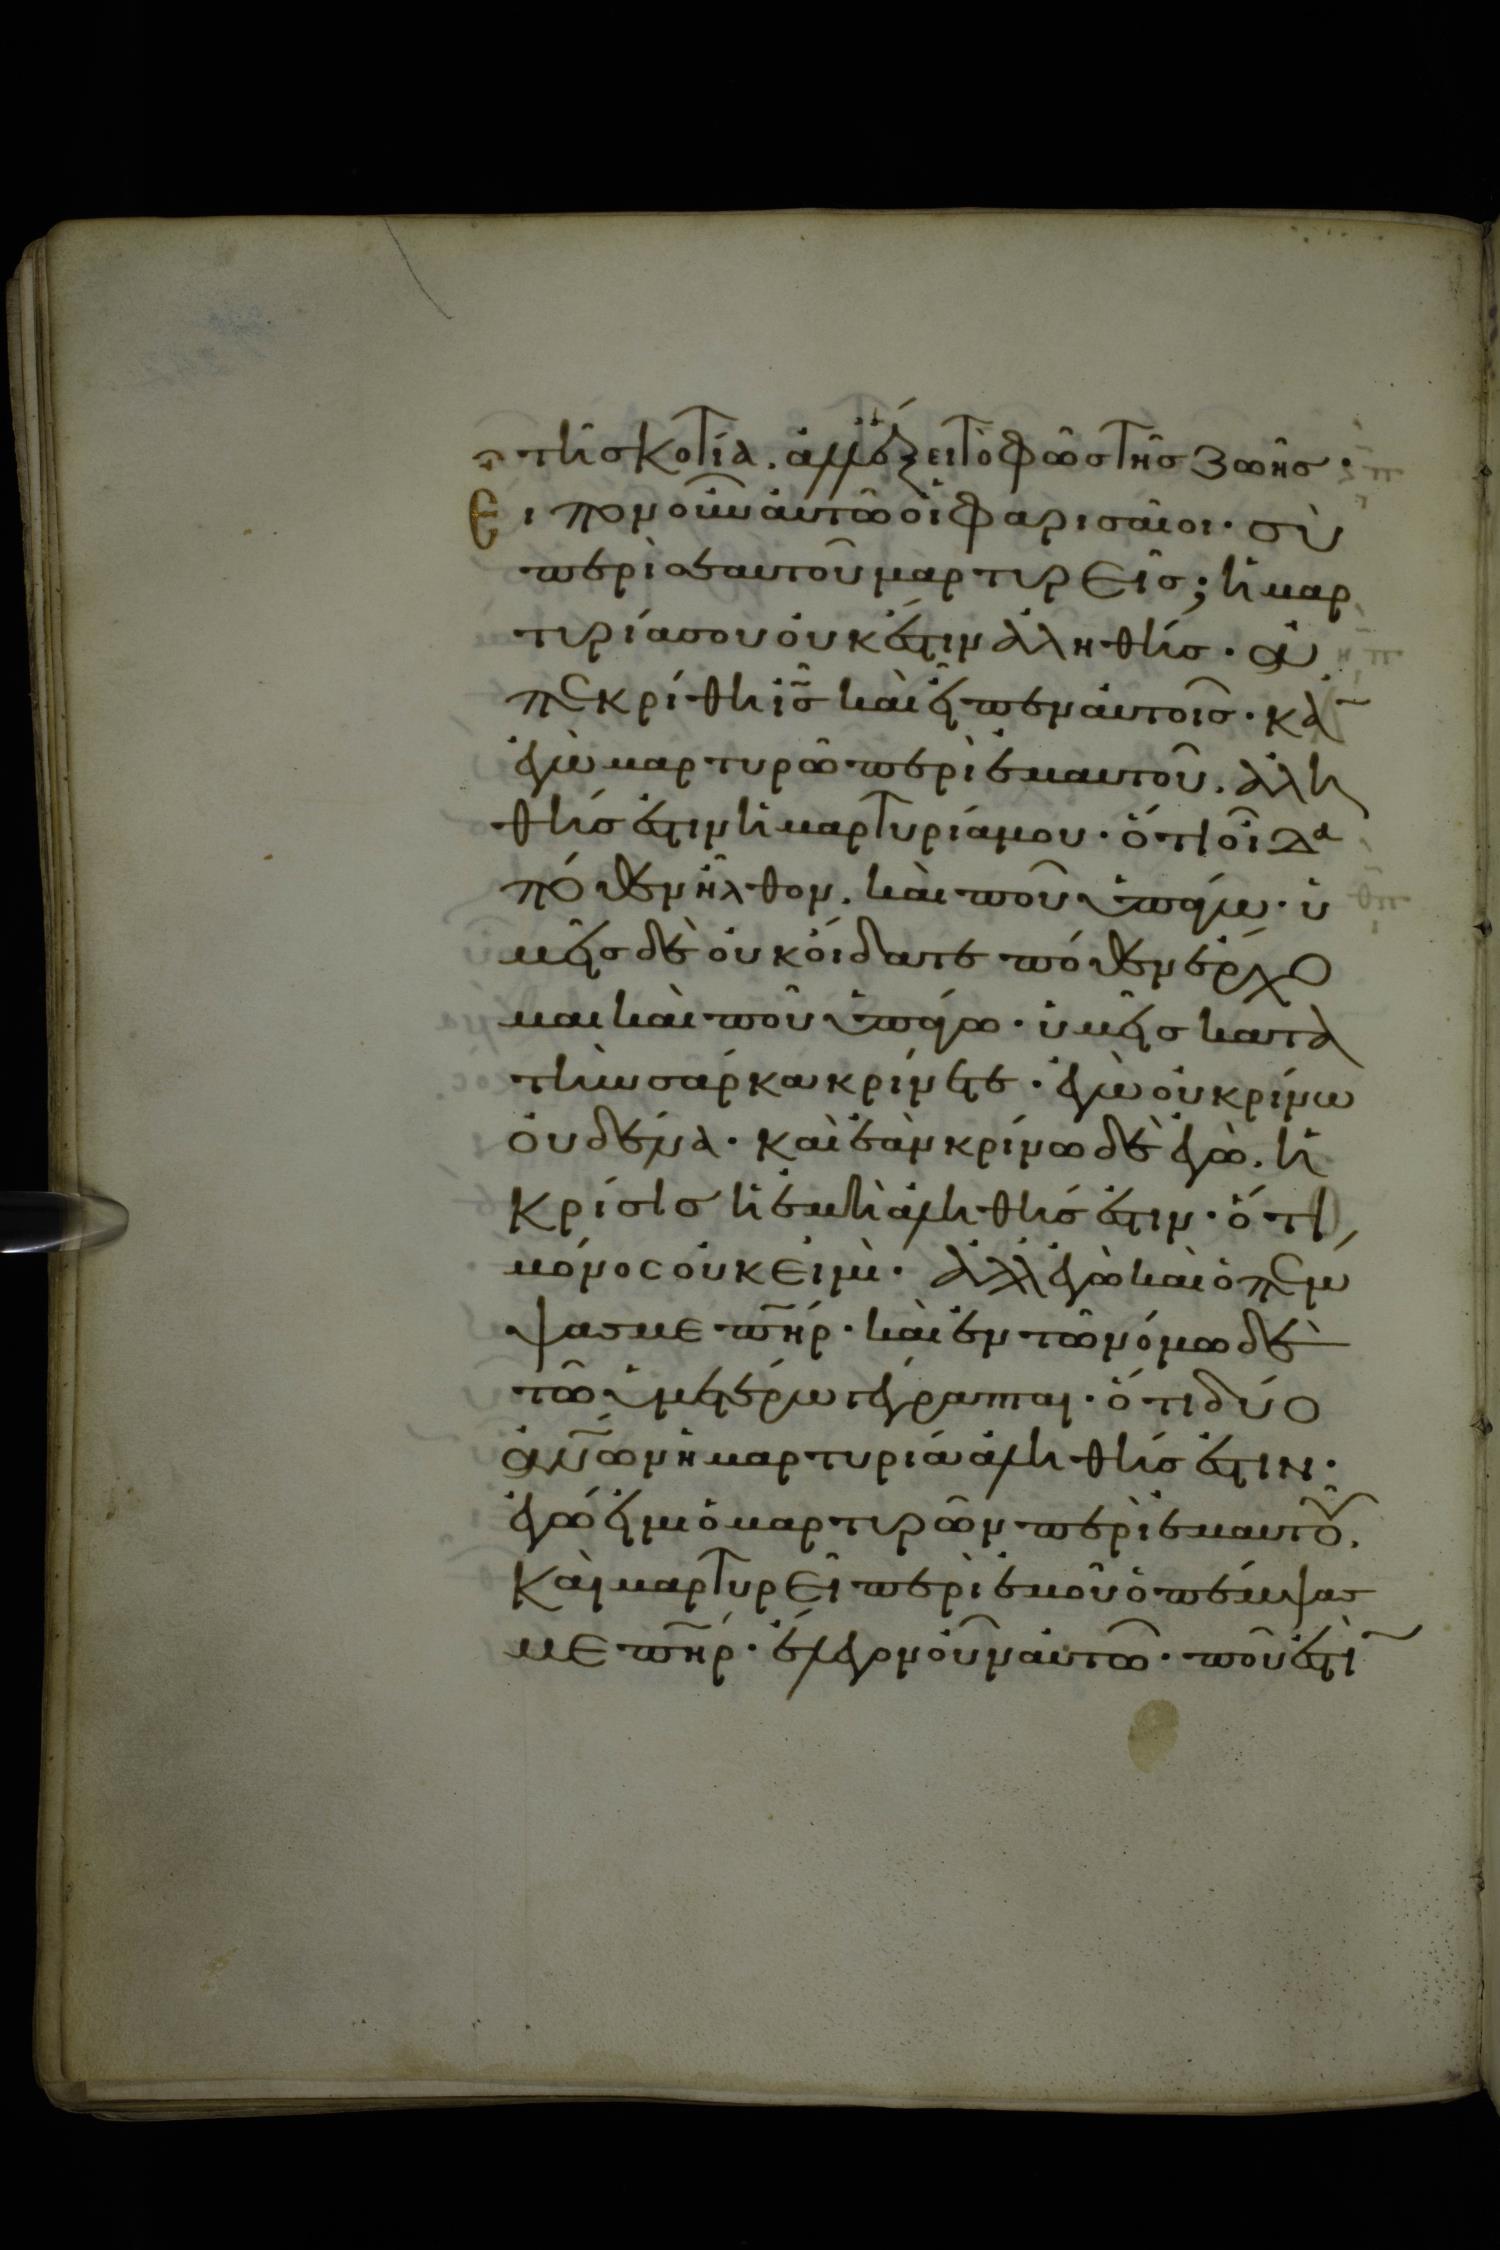 τῆ σκοτία. ἀλλ' ἕξει τὸ φῶς τῆς ζωῆς·
Εἶπον οὖν αὐτῶ οἱ φαρισαῖοι· σὺ
περὶ σεαυτοῦ μαρτυρεῖς; ἡ μαρ
τυρία σου οὐκ ἔστιν ἀληθής· ἀ
πεκρίθη ις̅ καὶ εἶπεν αὐτοῖς· κἂ
ἐγὼ μαρτυρῶ περὶ ἐμαυτοῦ. ἀλη
θής ἐστιν ἡ μαρτυρία μου· ὅτι οἶδα
πόθεν ἦλθον. καὶ ποῦ ὑπάγω· ὑ
μεῖς δὲ οὐκ οἴδατε πόθεν ἔρχο
μαι καὶ ποῦ ὑπάγω· ὑμεῖς κατὰ
τὴν σάρκα κρίνετε· ἐγὼ οὐ κρίνω
οὐδένα· καὶ ἐὰν κρίνω δὲ ἐγώ. ἡ
κρίσις ἡ ἐμὴ ἀληθής ἐστιν· ὅτι
μόνος οὐκ εἰμὶ· ἀλλ' ἐγὼ καὶ ὁ πέμ
ψας με πη̅ρ· καὶ ἐν τῶ νόμω δὲ
τῶ ὑμετέρω γέγραπται· ὅτι δύο
ἀν̅ων ἡ μαρτυρία ἀληθής ἐστιν·
ἐγώ εἰμι ὁ μαρτυρῶν περὶ ἐμαυτοῦ.
Καὶ μαρτυρεῖ περὶ ἐμοῦ ὁ πέμψας
με πη̅ρ· ἔλεγον οὖν αὐτῶ· ποῦ ἐστὶ